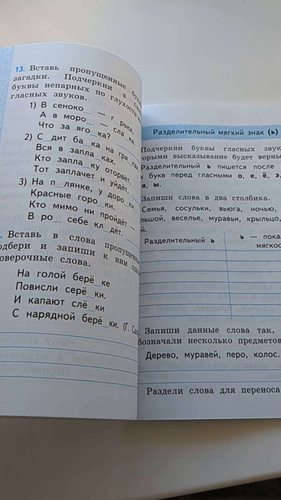 13. Вставь пропущенные
загадки. Подчеркни в
буквы непарных по глухости
гласных звуков.
1) В сеноко_ — г_рька,
А в моро_ — сла_ка.
Что за яго_ка?
2) С_дит ба_ка на гря_ках,
Вся в запла_ках,
Кто запла_ку оторвёт,
Тот заплачет и уйдёт.
3) На п_лянке, у доро_ки,
Красные горо_ки.
Кто мимо ни пройдёт —
В ро_ себе кл_дёт.
Вставь в слова пропущенные
подбери и запиши к ним
проверочные слова.
На голой берё_ке
Повисли серё_ки.
И капают слё_ки
С нарядной берё_ки. (Г.
Разделительный мягкий знак (ь)
Подчеркни буквы гласных
которыми высказывание будет
Разделительный ь пишется после
букв перед гласными о, е, ё,
я, ы.
Запиши слова в два столбика.
Семья, сосульки, вьюга, ночью,
большой, веселье, муравьи, крыльцо,
й.
Разделительный ь
ь — пока
мягкос
Запиши данные слова так,
обозначали несколько предметов
Дерево, муравей, перо, колос.
Раздели слова для переноса